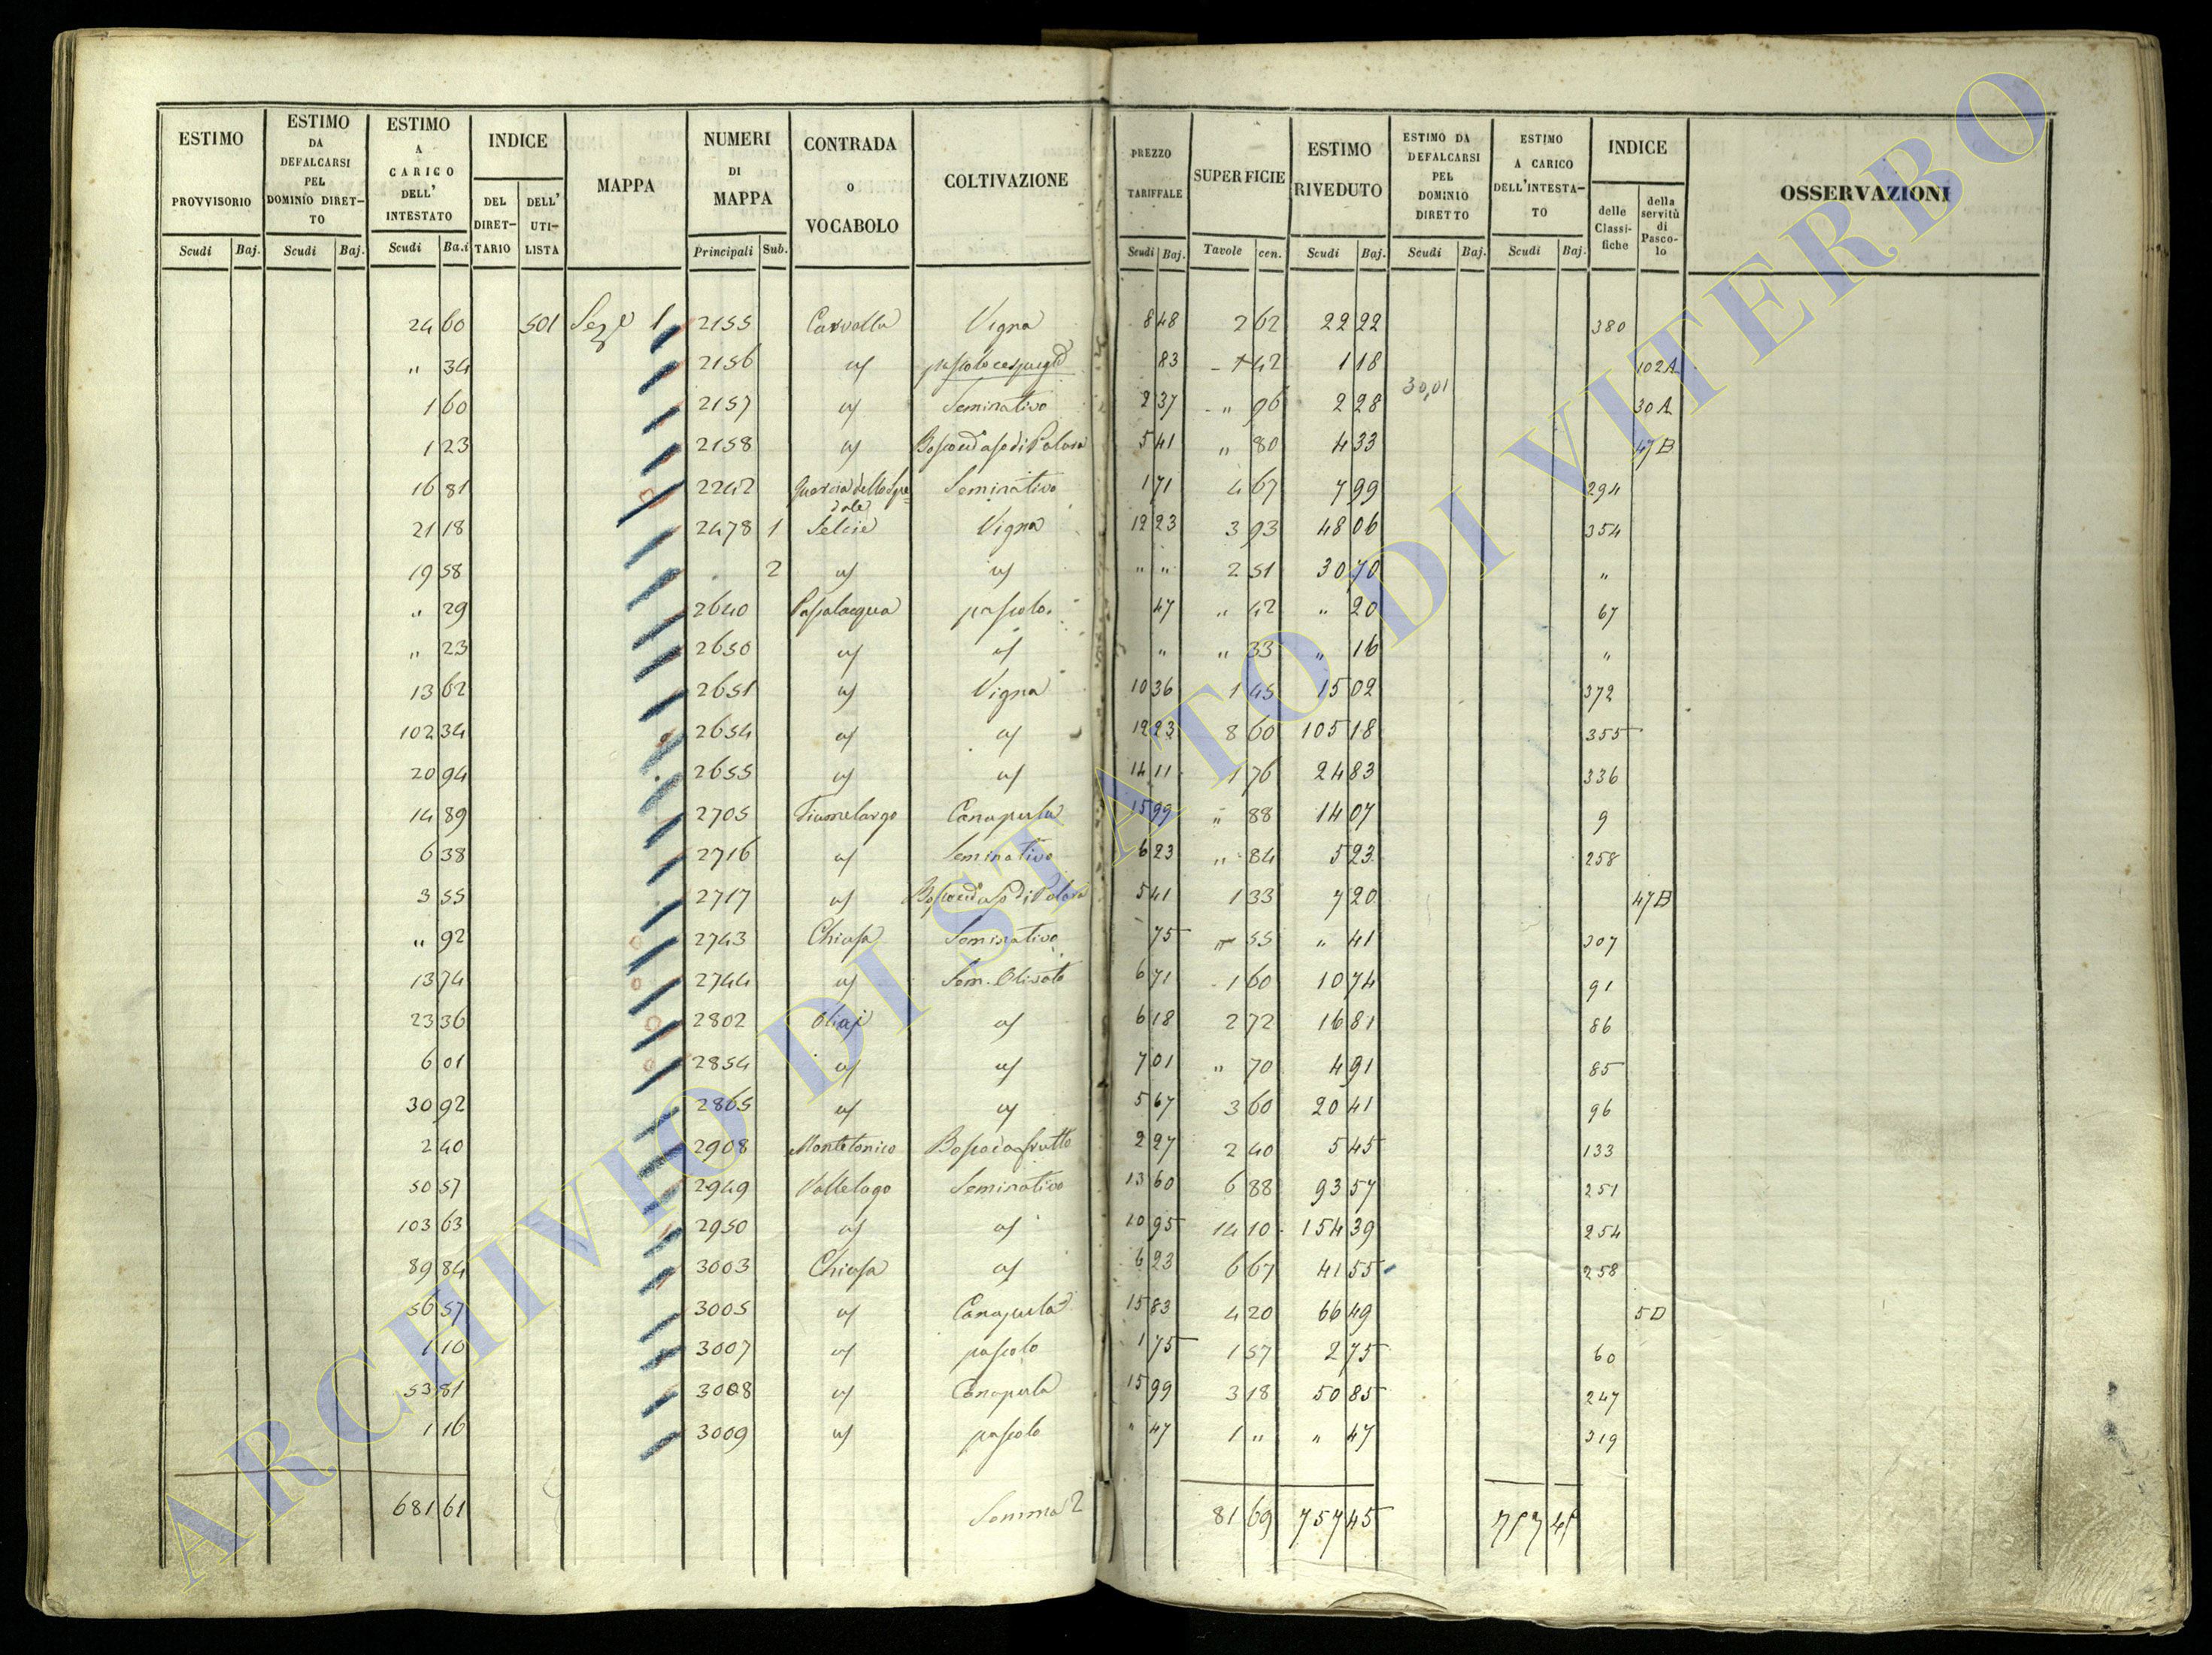 ESTIMO PROVVISORIO Scudi Baj.
ESTIMO DA DEFALCARSI PEL DOMINIO DIRET-TO Scudi Baj.
ESTIMO A CARICO DELL' INTESTATO Scudi Ba.i
INDICE DEL DIRET-TARIO DELL' UTI-LISTA
MAPPA
NUMERI DI MAPPA Principali Sub.
CONTRADA o VOCABOLO
COLTIVAZIONE
PREZZO TARIFFALE Scudi Baj.
SUPERFICIE Tavole cen.
ESTIMO RIVEDUTO Scudi Baj.
ESTIMO DA DEFALCARSI PEL DOMINIO DIRETTO Scudi Baj.
ESTIMO A CARICO DELL'INTESTA-TO Scudi Baj.
INDICE delle Classi-fiche della servitù di Pasco-lo
OSSERVAZIONI
24 60 501 1 2155 Vigna 8 48 2 62 22 22 380
" 34 2156 83 42 1 18 102A
30,01
1 60 2157 Seminativo 2 37 " 96 2 28 30A
1 23 2158 5 41 " 80 4 33 47B
16 81 2242 Seminativo 1 71 4 67 7 99 294
21 18 2478 1 Selcie Vigna 12 23 3 93 48 06 354
19 58 2 " " 2 51 30 70 "
" 29 2640 Passalacqua pascolo 47 " 42 " 20 67
" 23 2650 " " 33 " 16 "
13 62 2651 Vigna 10 36 1 45 15 02 372
102 34 2654 12 23 8 60 105 18 355
20 94 2655 14 11 1 76 24 83 336
14 89 2705 Fiumelargo Canapula 15 99 " 88 14 07 9
6 38 2716 Seminativo 6 23 " 84 5 23 258
3 55 2717 5 41 1 33 7 20 47B
" 92 2743 Chiusa Seminativo 75 55 " 41 307
13 74 2744 Sem. Olivato 6 71 1 60 10 74 91
23 36 2802 6 18 2 72 16 81 86
6 01 2854 7 01 " 70 4 91 85
30 92 2865 5 67 3 60 20 41 96
2 40 2908 Montetonico Bosco da frutto 2 27 2 40 5 45 133
50 57 2949 Vallelago Seminativo 13 60 6 88 93 57 251
103 63 2950 10 95 14 10 154 39 254
89 84 3003 Chiusa 6 23 6 67 41 55 258
56 57 3005 Canapula 15 83 4 20 66 49 5D
1 10 3007 pascolo 1 75 1 57 2 75 60
53 81 3008 Canapula 15 99 3 18 50 85 247
1 16 3009 pascolo " 47 1 " " 47 319
681 61 Somma 2 81 69 757 45 757 45
ARCHIVIO DI STATO DI VITERBO